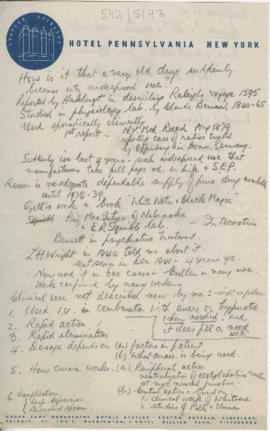 542/5/43
STATLER OPERATED
HOTEL PENNSYLVANIA NEW YORK
How is it that a very old drug suddenly
becomes into widespread use?
Reported by Hakluyt in describing Raleigh's voyage 1595
Studied in physiology lab. by Claude Bernard 1840-65
Used sporadically clinically
1st report - NY Med. Record Aug 1879
reporting case of rabies treated
by Offenberg in Bonn, Germany.
Suddenly in last 4 years - such widespread use that
manufacturers take full page ad. in Life & S.E.P.
Reason is no adequate dependable supply of pure drug available
until 1938-39
Gill's work & book White Water & Black Magic
Squibb Prof MacIntyre of Nebraska
& ER Squibb lab. Intocostrin
Bennett in psychiatric treatment.
L.H. Wright in 1940 told me about it.
in Dec 1941 - 4 years ago.
Now used it in 600 cases - Cullen in many use
Work confirmed by many workers.
Clinical use not described now by me:
1. Used I.V. in combination with anaes. or hypnotic
2. Rapid action
when needed and
3. Rapid elimination
it does fill a need
4. Dosage depends on (a) factors in patient
(b) What anaes. is being used.
5. How curare works. (a) Peripheral action
neutralizing of acetylcholine
at myo neural junction
(b) Central action
1. Clinical work of Whitacre
2. studies of Pick & Unna
6 Complications
Resp. depression
Bronchial spasm